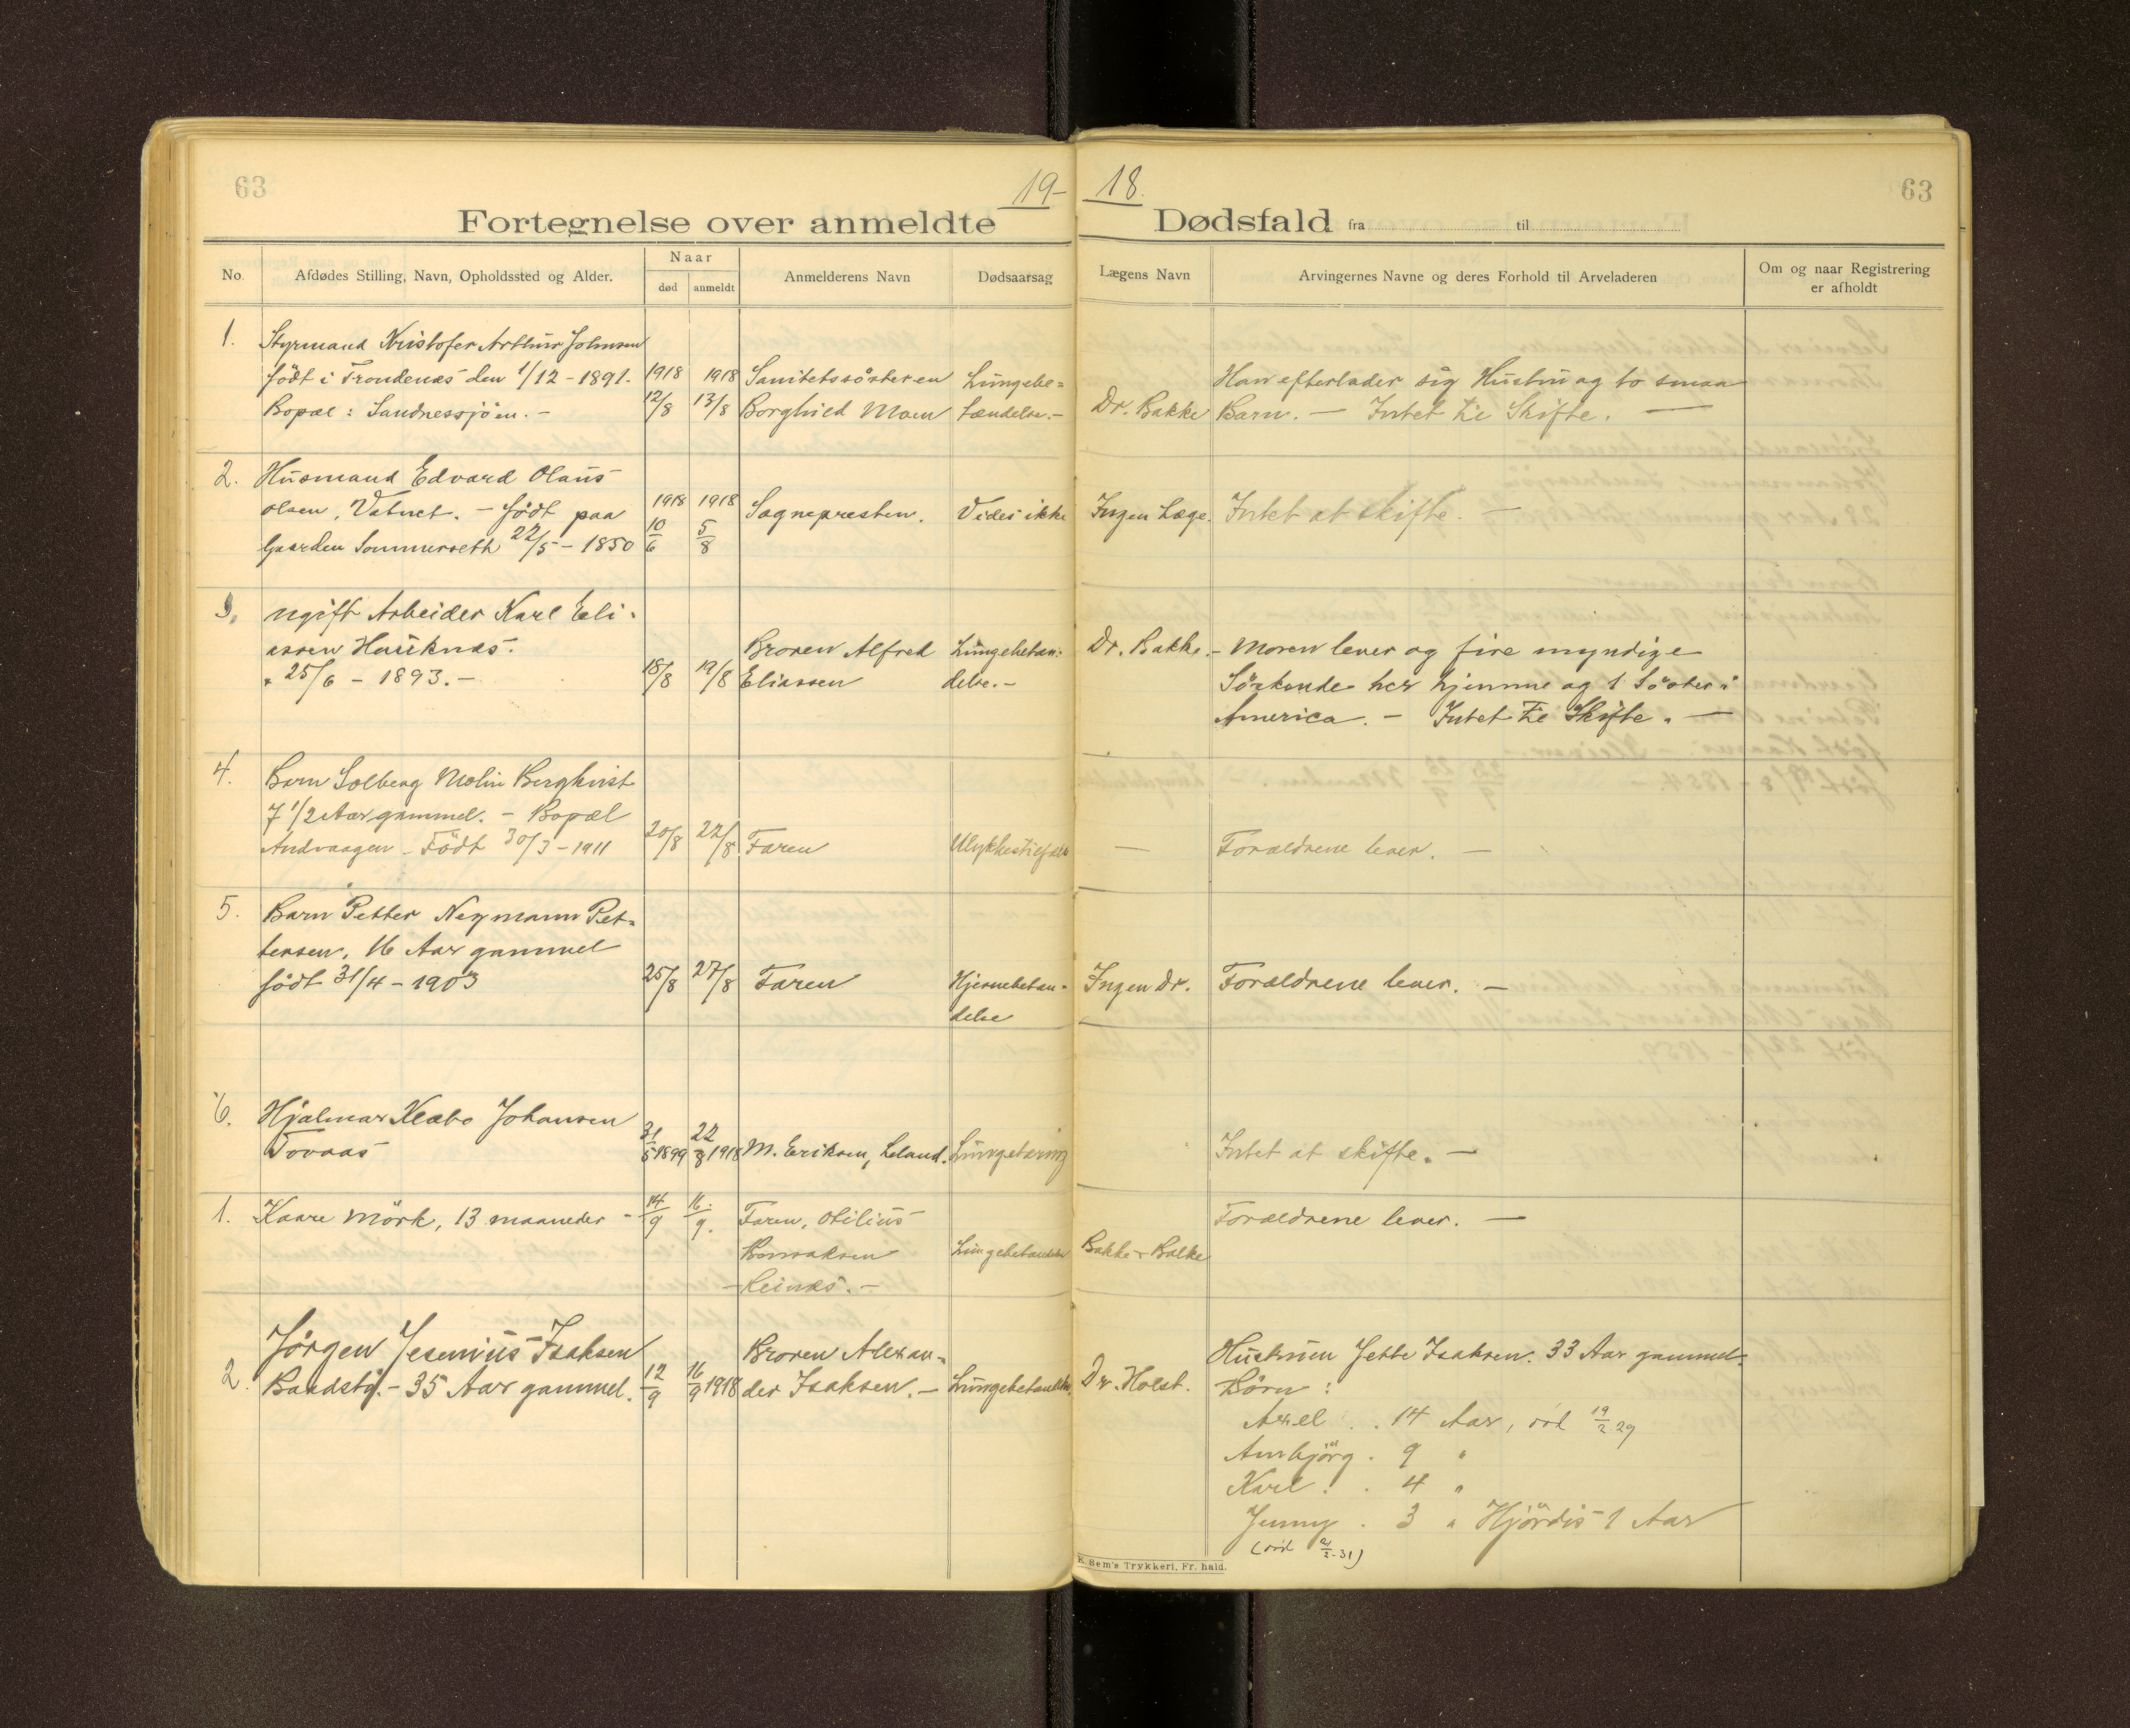 63
19-
18.
63
Fortegnelse over anmeldte
Dødsfald fra til
No.
Afdødes Stilling, Navn, Opholdssted og Alder.
Naar
død
anmeldt
Anmelderens Navn
Dødsaarsag
Lægens Navn
Arvingernes Navne og deres Forhold til Arveladeren
Om og naar Registrering
er afholdt
1.
Styrmand Kristofer Arthur Johnsen
født i Trondenæs den 1/12 - 1891. 1918 1918 Sanitetssösteren Lungebe=
Han efterlader sig Hustru og to smaa
Bopæl: Sandnessjöen. - 12/8 13/8 Borghild Moen tændelse. -
Dr. Bakke Barn. - Intet til Skifte. -
2. Husmand Edvard Olaus
Olsen, Vatnet. - født paa 1918 1918 Sognepresten. Vides ikke
Ingen Læge. Intet at skifte. -
Gaarden Sommerseth 22/5 - 1850 10/6 5/8
3. ugift Arbeider Karl Eli=
assen Hauknæs. Broren Alfred Lungebetæn=
Dr. Bakke. - Moren lever og fire myndige
* 25/6 - 1893. - 18/8 19/8 Eliassen delse. -
Söskende her hjemme og 1 Söster i
America. - Intet til Skifte. -
4. Barn Solberg Molin Bergkvist
7 1/2 Aar gammel. - Bopæl
Andvaagen - Födt 30/3 - 1911 20/8 22/8 Faren Ulykkestilfælde
- Forældrene lever. -
5. Barn Petter Neymann Pet=
tersen, 16 Aar gammel
födt 31/4 - 1903 25/8 27/8 Faren Hjernebetæn=
Ingen Dr. Forældrene lever. -
delse
6. Hjalmar Klæbo Johansen
Tovaas 31/5 1899 22/8 1918 M. Eriksen, Leland. Lungetæring
Intet at skifte. -
1. Kaare Mörk, 13 maaneder - 14/9 16/9. Faren, Otilius
Forældrene lever. -
Bonsaksen Lungebetændelse
Bakke + Balke
- Leinæs. -
Jörgen Jesenius Isaksen Broren Alexan=
Hustruen Jette Isaksen. 33 Aar gammel.
2. Baadstj. - 35 Aar gammel. 12/9 16/9 1918 der Isaksen. - Lungebetændelse.
Dr. Holst. Börn:
Axel . . 14 Aar, död 19/2 29
Annbjörg . 9 "
Karl . . 4 "
Jenny . 3 " Hjördis 1 Aar
(död 21/2-31)
E. Sem's Trykkeri, Fr. hald.